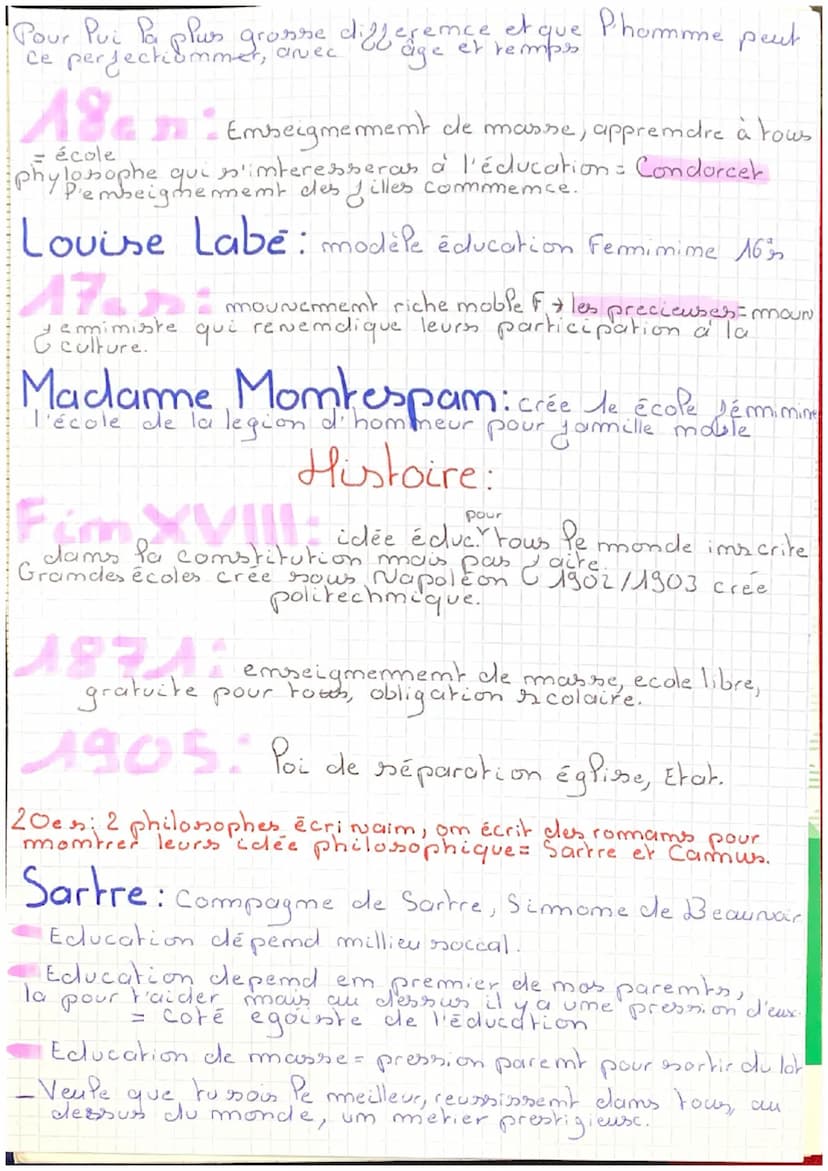 Pour lui la plus grosse differemce et que l'homme peut
ce perfectionner, avec âge et temps
18e s : Enseignement de masse, apprendre à tous
= école
phylosophe qui s'interesseras à l'éducation = Condorcet
l'enseignement des filles commence.
Louise Labé : modèle éducation Feminime 16e s
17e s : mouvement riche noble F → les precieuses = mouv
feministe qui revendique leurs participation à la
culture.
Madame Montespam : crée 1e école féminine
l'école de la legion d'honneur pour famille noble
Histoire :
Fin XVIII : idée éduc. pour tous le monde inscrite
dans la constitution mais pas faite.
Grandes écoles crée sous Napoléon 1902/1903 crée
politechnique.
1871 : enseignement de masse, ecole libre,
gratuite pour tous, obligation scolaire.
1905 : loi de séparation église, Etat.
20e s : 2 philosophes écrivain, on écrit des romans pour
montrer leurs idée philosophique = Sartre et Camus.
Sartre : Compagne de Sartre, Simone de Beauvoir
Education dépend millieu soccal.
Education depend en premier de nos parents,
la pour t'aider mais au dessus il y a une pression d'eux.
= coté egoiste de l'éducation
Education de masse = pression parent pour sortir du lot
- Veule que tu sois le meilleur, reussissent dans tous, au
dessus du monde, un metier prestigieuse.